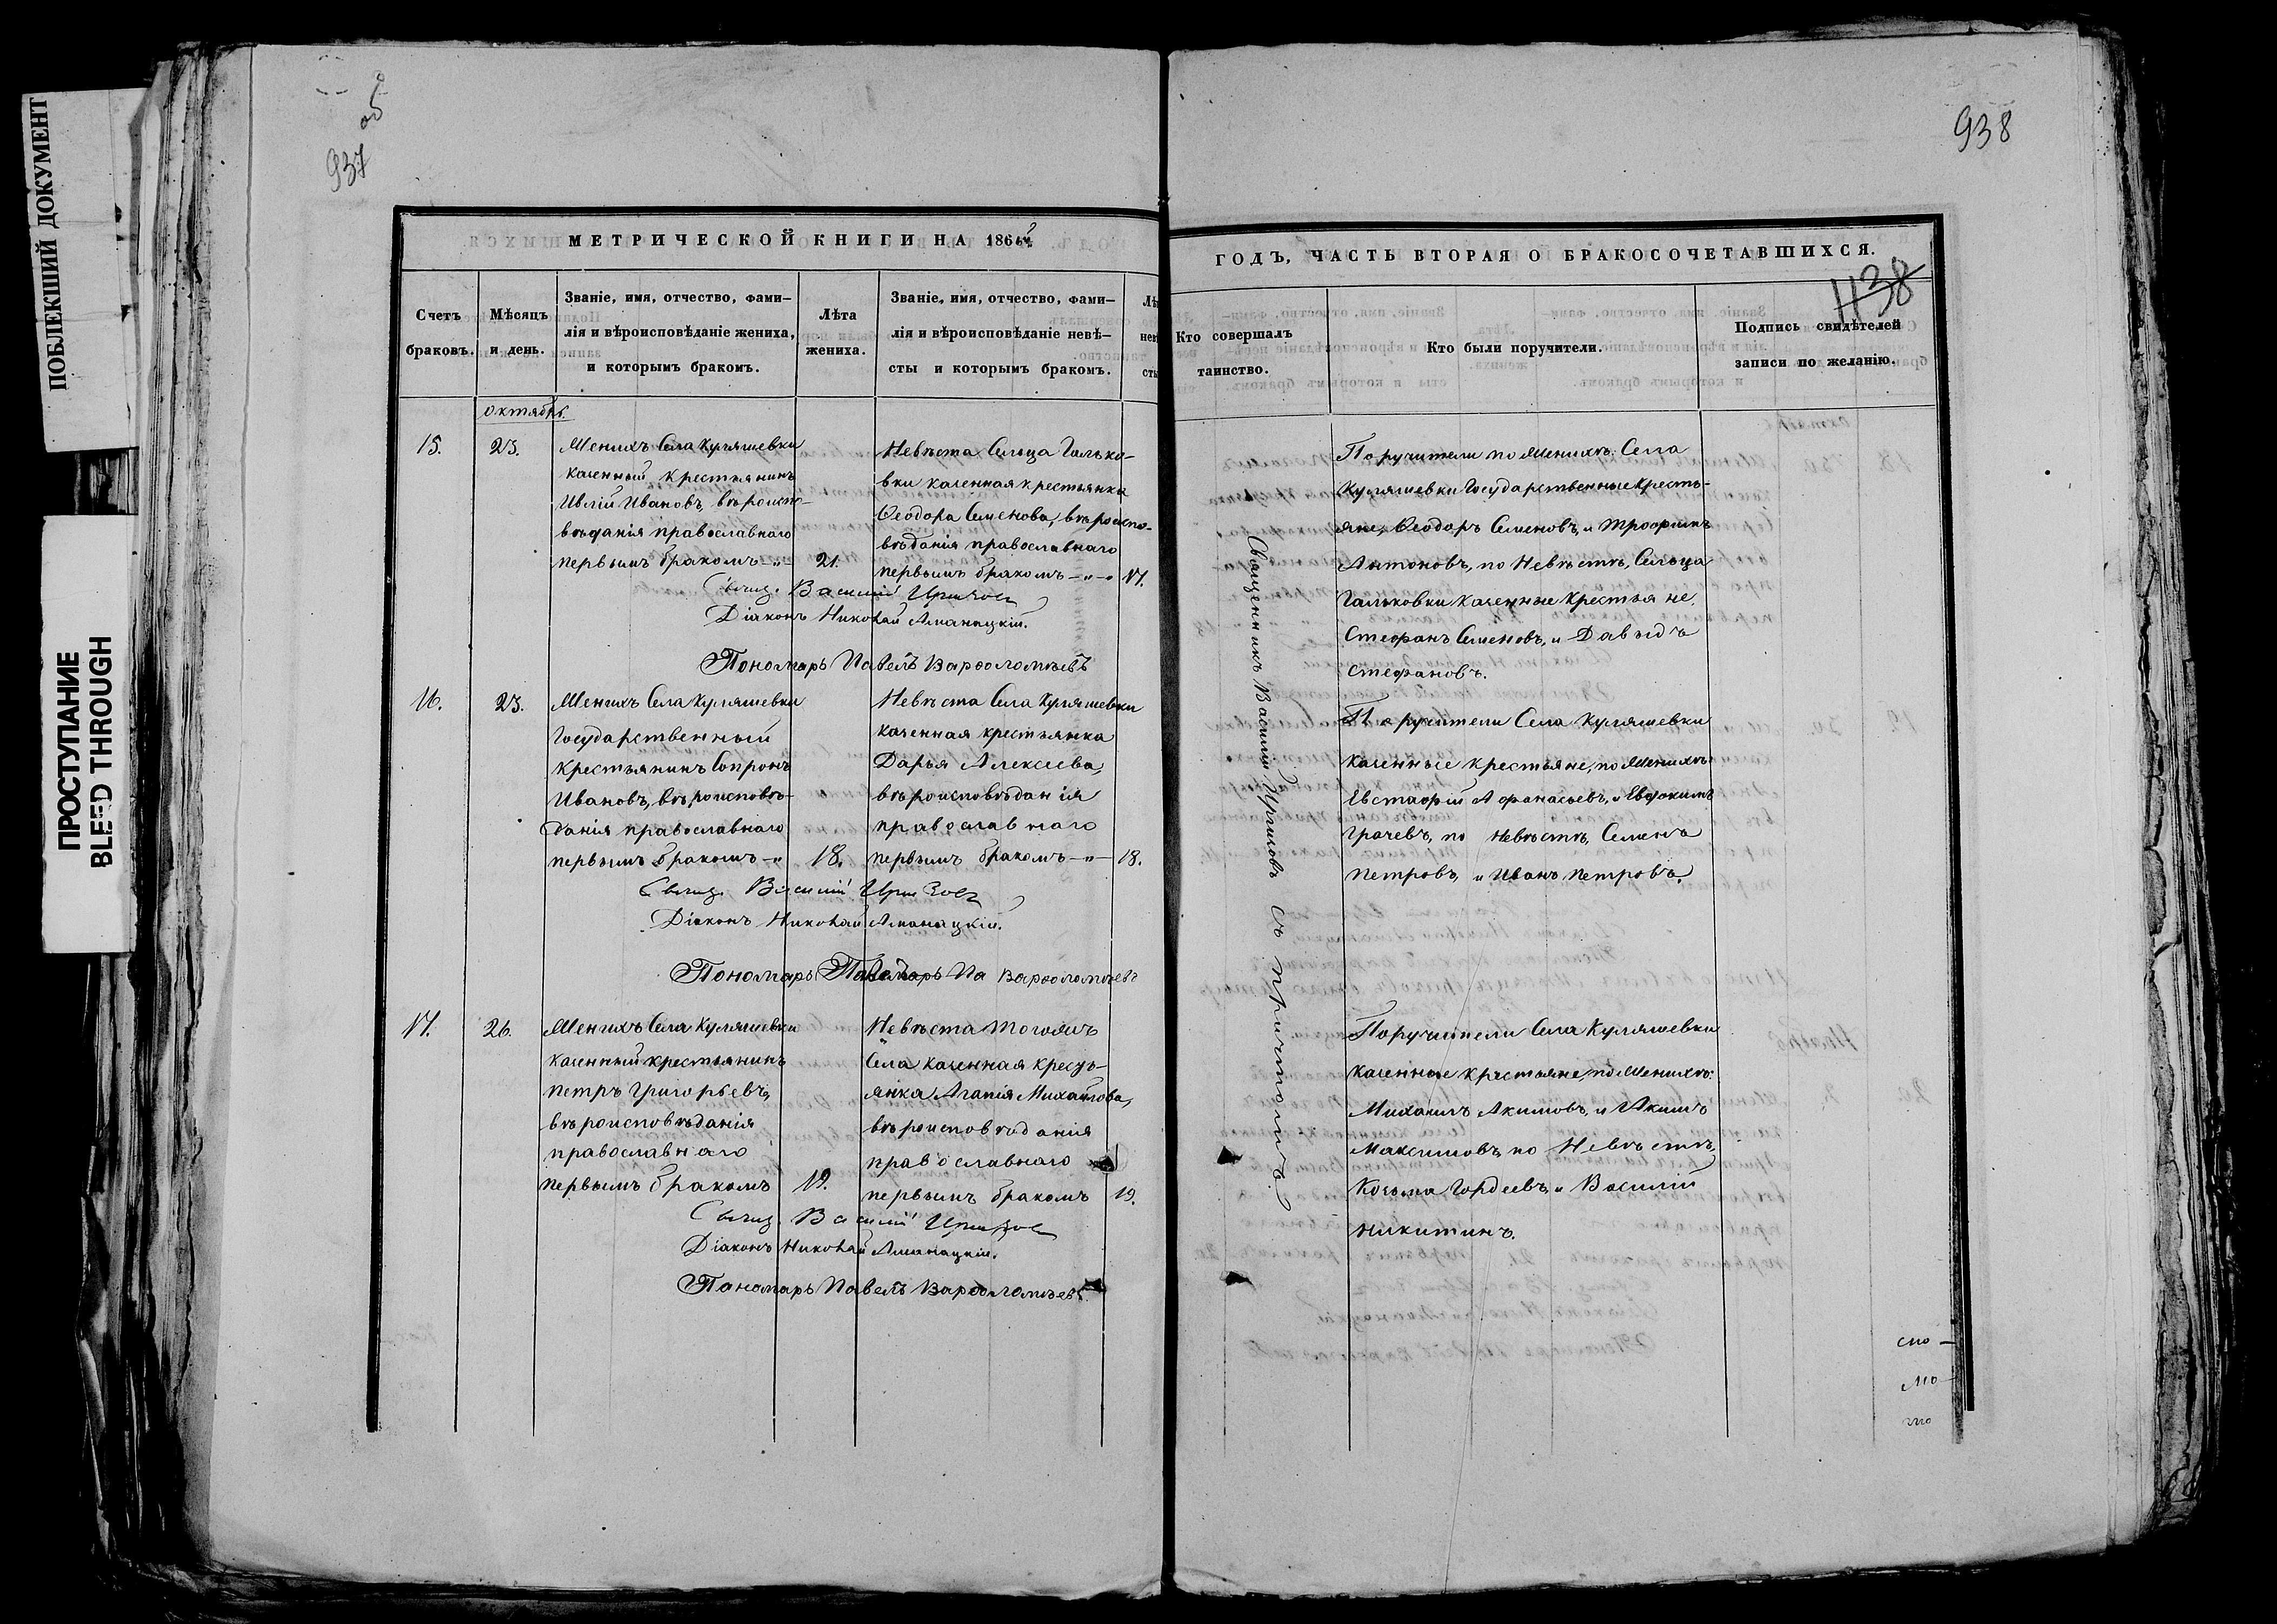 ПОБЛЕКШИЙ ДОКУМЕНТ
ПРОСТУПАНИЕ
BLEED THROUGH
937
об
938
1138
МЕТРИЧЕСКОЙ КНИГИ НА 186
Счетъ
браковъ.
Мѣсяцъ
и день.
Званіе, имя, отчество, фами-
лія и вѣроисповѣданіе жениха,
и которымъ бракомъ.
Лѣта
жениха.
Званіе, имя, отчество, фами-
лія и вѣроисповѣданіе невѣ-
сты и которымъ бракомъ.
октябрь.
15.
23.
Женихъ Села Куляшевки
казенный крестьянинъ
Ивановъ, вѣроиспо-
вѣданія православнаго
первымъ бракомъ -"-
21.
Невѣста Сельца Галько-
вки казенная крестьянка
Ѳеодора Семенова, вѣроиспо-
вѣданія православнаго
первымъ бракомъ -"-
17.
Свящ. Василій Иргизовъ
Діаконъ Николай
Пономарь Павелъ Варѳоломѣевъ
16.
23.
Женихъ Села Куляшевки
Государственный
крестьянинъ Сопронъ
Ивановъ, вѣроисповѣ-
данія православнаго
первымъ бракомъ -"
18.
Невѣста Села Куляшевки
казенная крестьянка
Дарья Алексѣева,
вѣроисповѣданія
православнаго
первымъ бракомъ -"-
18.
Свящ. Василій Иргизовъ
Діаконъ Николай
Пономарь Варѳоломѣевъ
17.
26.
Женихъ Села Куляшевки
казенный крестьянинъ
Петръ Григорьевъ,
вѣроисповѣданія
православнаго
первымъ бракомъ
19.
Невѣста тогожъ
Села казенная кресть-
янка Агапія Михайлова,
вѣроисповѣданія
православнаго
первымъ бракомъ
19.
Свящ. Василій Иргизовъ
Діаконъ Николай
Пономарь Павелъ Варѳоломѣевъ
ГОДЪ, ЧАСТЬ ВТОРАЯ О БРАКОСОЧЕТАВШИХСЯ.
Кто совершалъ
таинство.
Кто были поручители.
Подпись свидѣтелей
записи по желанію.
Священникъ Василій Иргизовъ съ причтомъ.
Поручители по Женихѣ: Села
Куляшевки Государственные Кресть-
яне, Ѳеодоръ Семеновъ, и Трофимъ
Антоновъ, по Невѣстѣ, Сельца
Гальковки казенные крестьяне,
Стефанъ Семеновъ, и Давыдъ
Стефановъ.
Поручители Села Куляшевки
казенные крестьяне, по Женихѣ
Евстафій Афанасьевъ, и Евдокимъ
Грачевъ, по Невѣстѣ, Семенъ
Петровъ, и Иванъ Петровъ.
Поручители Села Куляшевки
казенные крестьяне, по Женихѣ:
Михаилъ Акимовъ, и Акимъ
Максимовъ, по Невѣстѣ,
Козьма Гордеевъ, и Василій
Никитинъ.